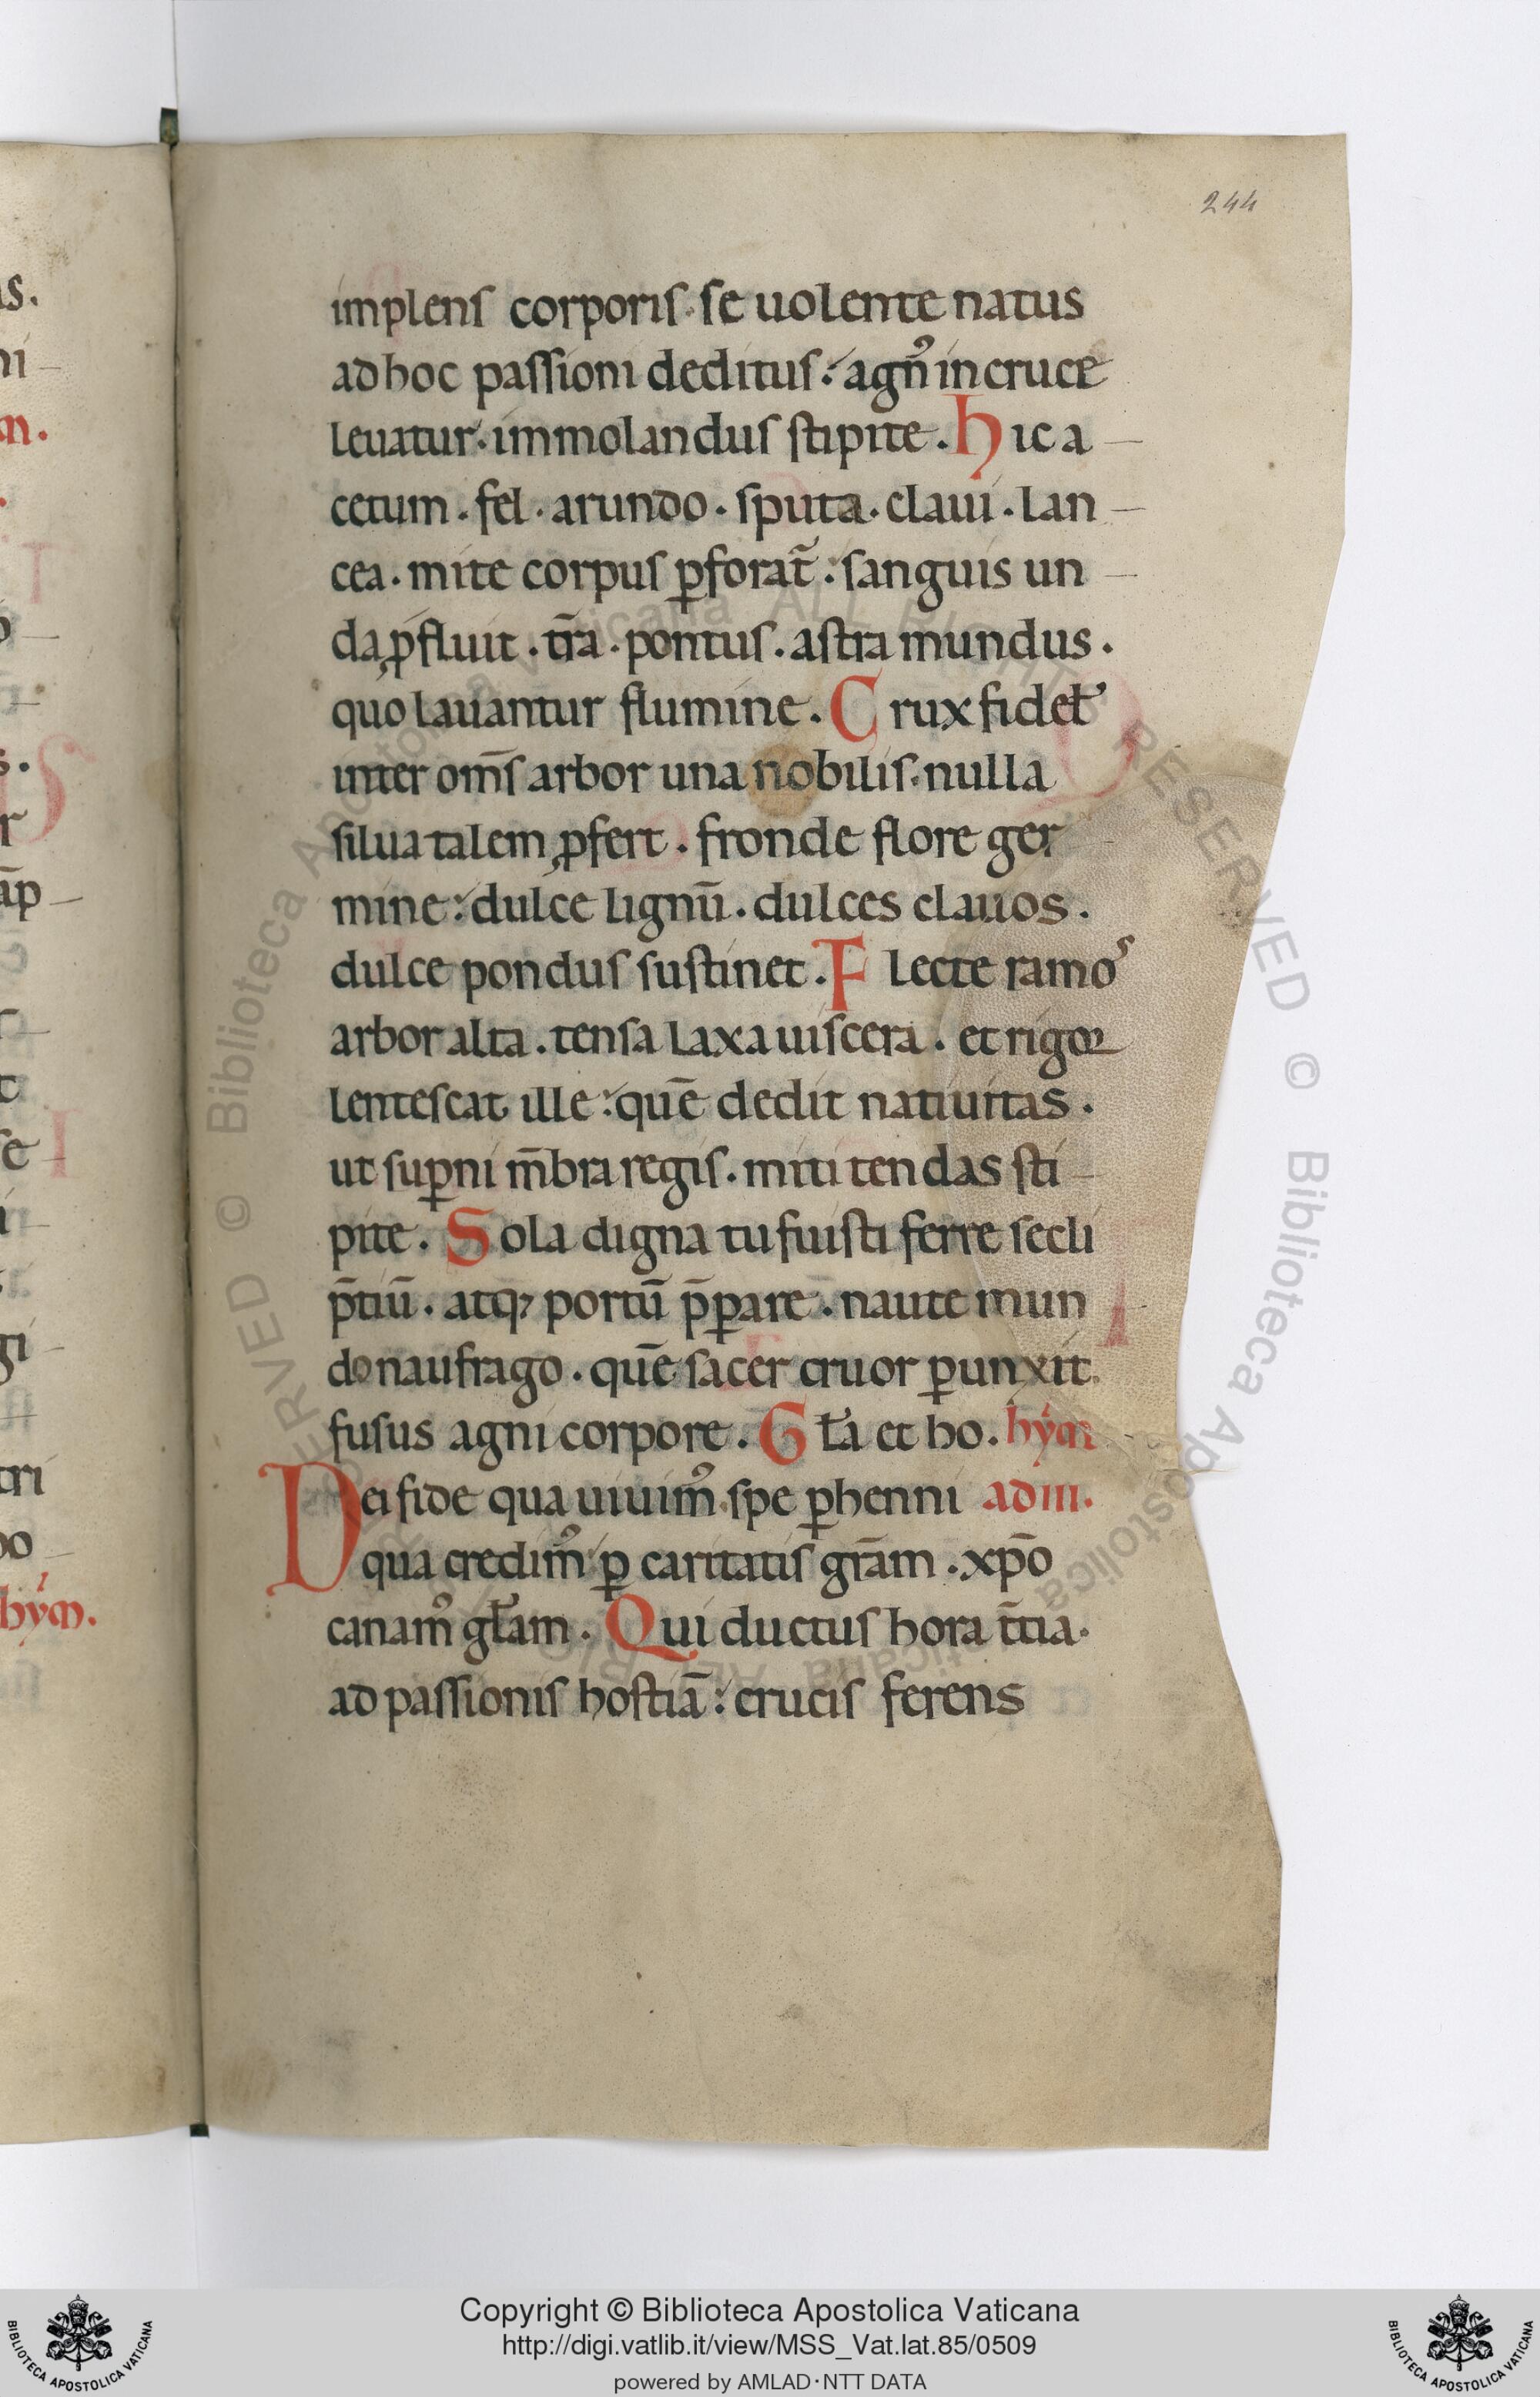 244
implens corporis. se uolente natus
ad hoc passioni deditus: agn᷒ in cruce
leuatur. immolandus stipite. Hic a-
cetum. fel. arundo. sputa. claui. lan-
cea. mite corpus ꝑforat̃: sanguis un-
da ꝓfluit. tr̄a. pontus. astra mundus.
quo lauantur flumine. Crux fidel̛
inter om̄s arbor una nobilis. nulla
silua talem ꝓfert. fronde flore ger-
mine: dulce lignū. dulces clauos.
dulce pondus sustinet. Flecte ramos
arbor alta. tensa laxa uiscera. et rigor
lentescat ille: quē dedit natiuitas.
ut suꝑni m̄bra regis. miti tendas sti-
pite. Sola digna tu fuisti ferre secli
p̄tiū. atq; portū p̄ꝑare. naute mun
do naufrago. quē sacer cruor ꝑunxit.
fusus agni corpore. Gl̄a et ho. hym
Dei fide qua uiuim᷒. spe ꝑhenni ad III.
qua credim᷒: ꝑ caritatis gr̄am. xp̄o
canam᷒ gl̄am. Qui ductus hora t̄tia.
ad passionis hostiā: crucis ferens
s.
ni-
m.
ap-
se-
gi-
tri
hym.
© Biblioteca Apostolica Vaticana ALL RIGHTS RESERVED
© Biblioteca Apostolica Vaticana ALL RIGHTS RESERVED
BIBLIOTECA APOSTOLICA VATICANA
Copyright © Biblioteca Apostolica Vaticana
http://digi.vatlib.it/view/MSS_Vat.lat.85/0509
powered by AMLAD·NTT DATA
BIBLIOTECA APOSTOLICA VATICANA